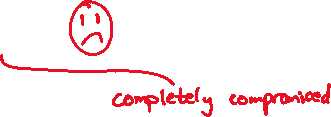 completely compromised